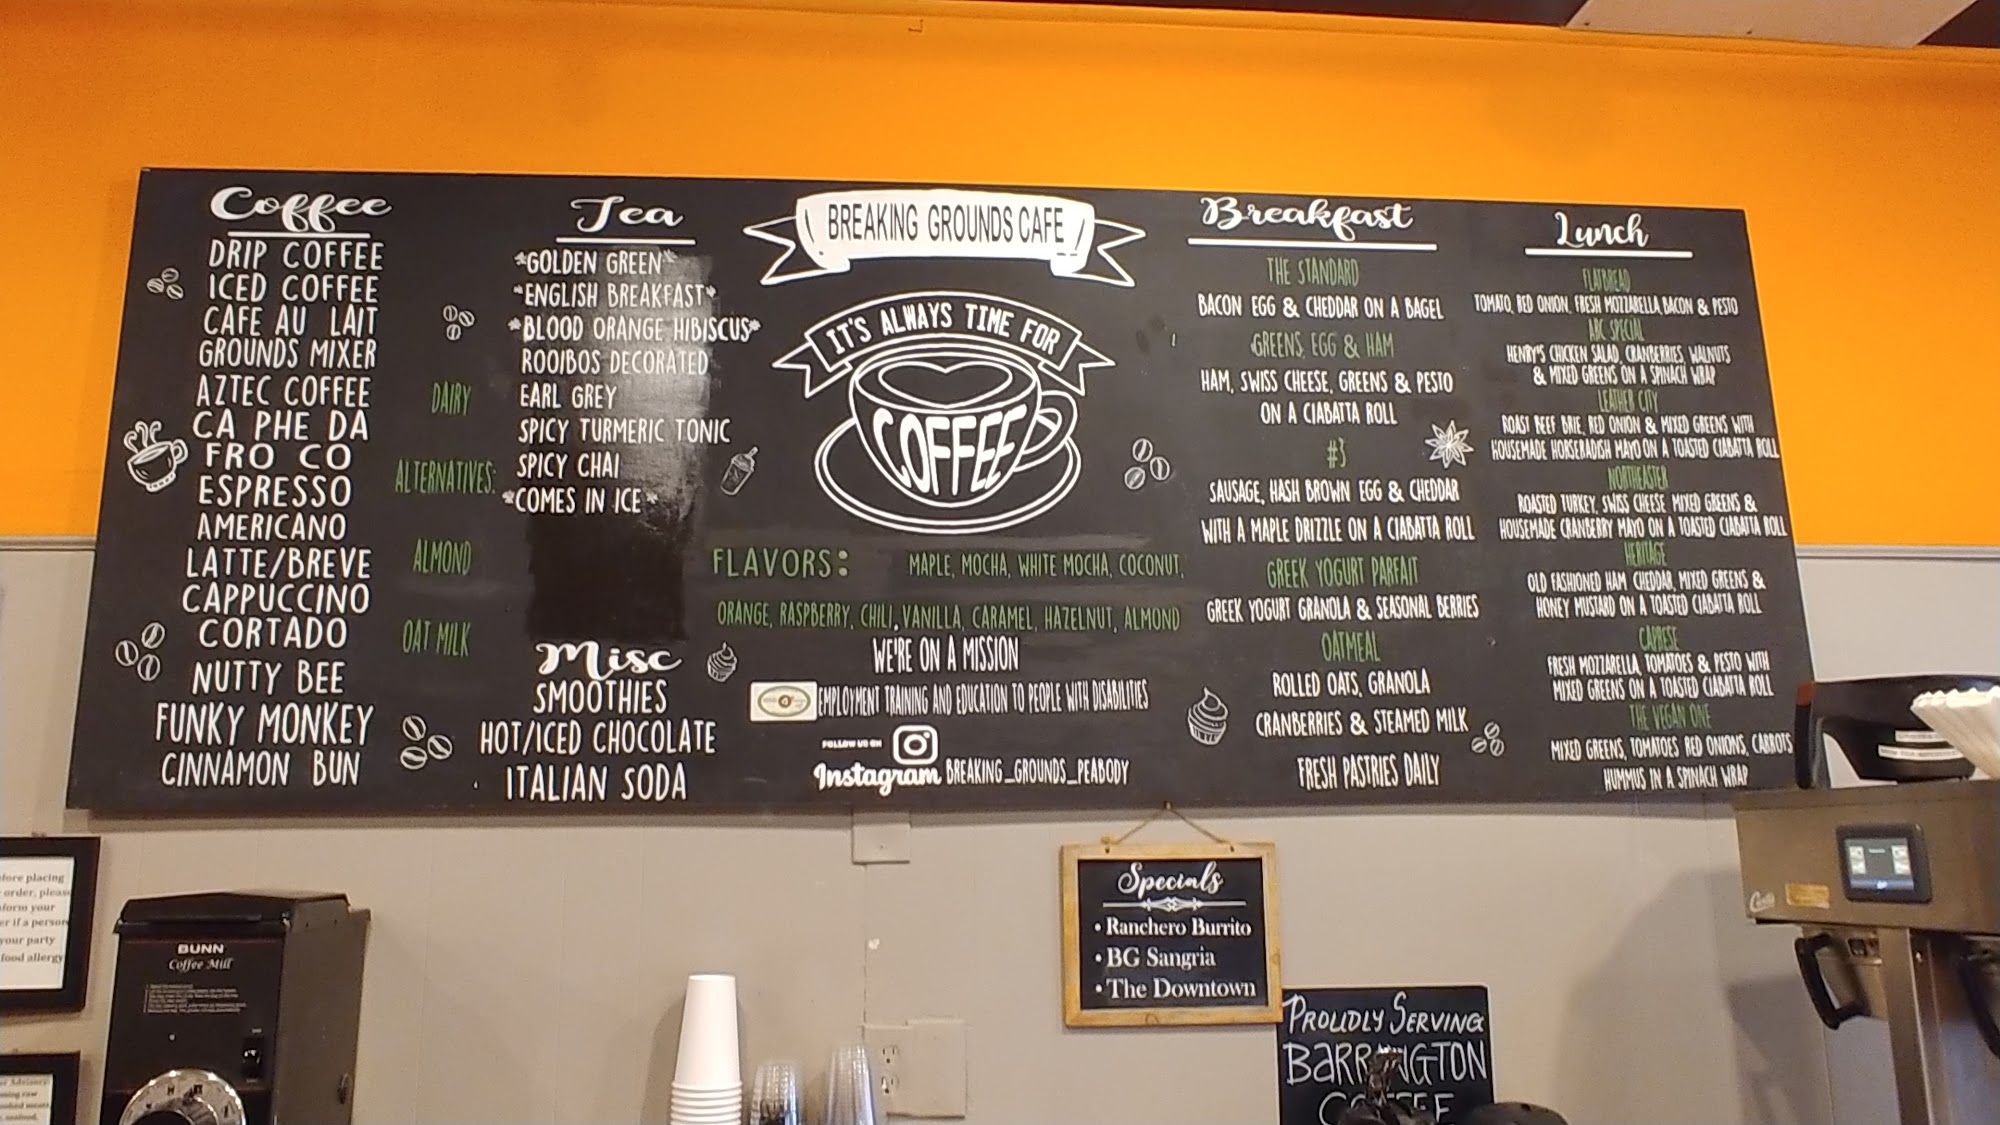 Coffee
DRIP COFFEE
ICED COFFEE
CAFE AU LAIT
GROUNDS MIXER
AZTEC COFFEE
CA PHE DA
FRO CO
ESPRESSO
AMERICANO
LATTE/BREVE
CAPPUCCINO
CORTADO
NUTTY BEE
FUNKY MONKEY
CINNAMON BUN
DAIRY
ALTERNATIVES:
ALMOND
OAT MILK
Tea
*GOLDEN GREEN*
*ENGLISH BREAKFAST*
*BLOOD ORANGE HIBISCUS*
ROOIBOS DECORATED
EARL GREY
SPICY TURMERIC TONIC
SPICY CHAI
*COMES IN ICE*
Misc
SMOOTHIES
HOT/ICED CHOCOLATE
ITALIAN SODA
BREAKING GROUNDS CAFE
IT'S ALWAYS TIME FOR
COFFEE
FLAVORS: MAPLE, MOCHA, WHITE MOCHA, COCONUT,
ORANGE, RASPBERRY, CHILI, VANILLA, CARAMEL, HAZELNUT, ALMOND
WE'RE ON A MISSION
EMPLOYMENT TRAINING AND EDUCATION TO PEOPLE WITH DISABILITIES
FOLLOW US ON
Instagram BREAKING_GROUNDS_PEABODY
Breakfast
THE STANDARD
BACON EGG & CHEDDAR ON A BAGEL
GREENS, EGG & HAM
HAM, SWISS CHEESE, GREENS & PESTO
ON A CIABATTA ROLL
#3
SAUSAGE, HASH BROWN EGG & CHEDDAR
WITH A MAPLE DRIZZLE ON A CIABATTA ROLL
GREEK YOGURT PARFAIT
GREEK YOGURT GRANOLA & SEASONAL BERRIES
OATMEAL
ROLLED OATS, GRANOLA
CRANBERRIES & STEAMED MILK
FRESH PASTRIES DAILY
Lunch
FLATBREAD
TOMATO, RED ONION, FRESH MOZZARELLA, BACON & PESTO
ABC SPECIAL
HENRY'S CHICKEN SALAD, CRANBERRIES, WALNUTS
& MIXED GREENS ON A SPINACH WRAP
LEATHER CITY
ROAST BEEF BRIE, RED ONION & MIXED GREENS WITH
HOUSEMADE HORSERADISH MAYO ON A TOASTED CIABATTA ROLL
NORTHEASTER
ROASTED TURKEY, SWISS CHEESE MIXED GREENS &
HOUSEMADE CRANBERRY MAYO ON A TOASTED CIABATTA ROLL
HERITAGE
OLD FASHIONED HAM CHEDDAR, MIXED GREENS &
HONEY MUSTARD ON A TOASTED CIABATTA ROLL
CAPRESE
FRESH MOZZARELLA, TOMATOES & PESTO WITH
MIXED GREENS ON A TOASTED CIABATTA ROLL
THE VEGAN ONE
MIXED GREENS, TOMATOES RED ONIONS, CARROTS
HUMMUS IN A SPINACH WRAP
Specials
• Ranchero Burrito
• BG Sangria
• The Downtown
PROUDLY SERVING
BARRINGTON
COFFEE
BUNN
Coffee Mill
placing
order, please
your
if a person
your party
food allergy